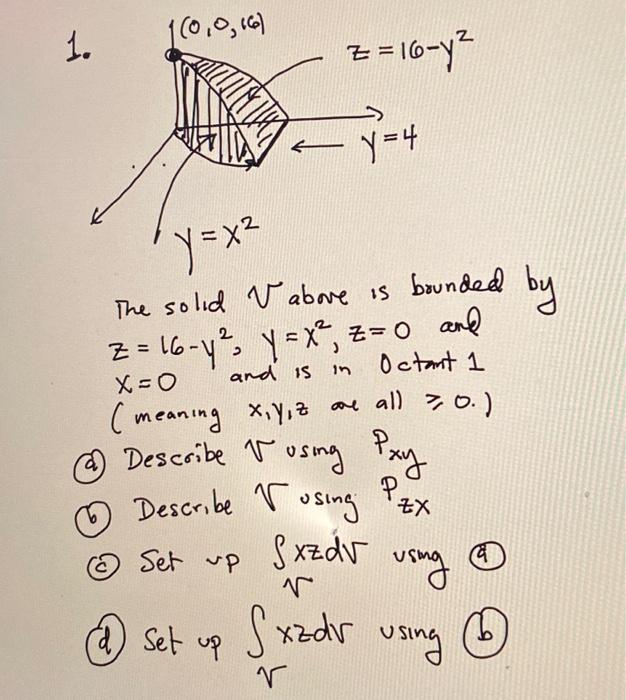 1.
(0,0,16)
z = 16-y²
y=4
y=x²
The solid V above is bounded by
z = 16-y², y=x², z=0 and
x=0 and is in Octant 1
(meaning x,y,z are all ≥ 0.)
ⓐ Describe V using Pxy
ⓑ Describe V using Pzx
ⓒ Set up ∫xzdv using ⓐ
V
ⓓ Set up ∫xzdv using ⓑ
V